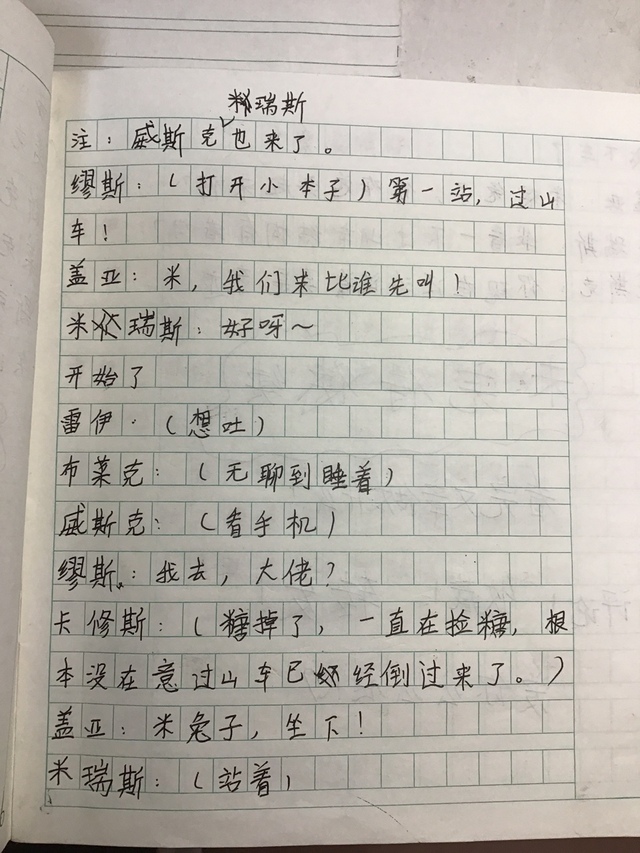 米瑞斯
注：威斯克也来了。
缪斯：（打开小本子）第一站，过山
车！
盖亚：米，我们来比谁先叫！
米瑞斯：好呀～
开始了
雷伊：（想吐）
布莱克：（无聊到睡着）
威斯克：（看手机）
缪斯：我去，大佬？
卡修斯：（糖掉了，一直在捡糖，根
本没在意过山车已经倒过来了。）
盖亚：米兔子，坐下！
米瑞斯：（站着）
评论